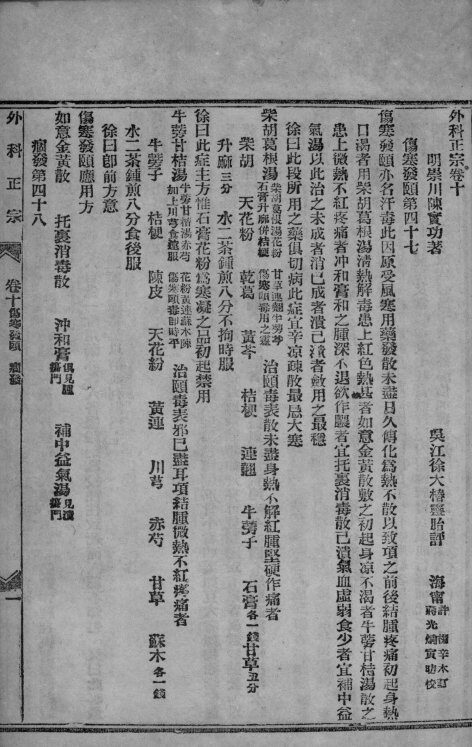 外科正宗卷十
明崇川陳實功著　吳江徐大椿靈胎評　海甯許楣辛木訂　蔣光焴寅昉校
傷寒發頤第四十七
傷寒發頤亦名汗毒此因原受風寒用藥發散未盡日久傳化爲熱不散以致項之前後結腫疼痛初起身熱
口渴者用柴胡葛根湯清熱解毒患上紅色熱甚者如意金黃散敷之初起身凉不渴者牛蒡甘桔湯散之
患上微熱不紅疼痛者冲和膏和之腫深不退欲作膿者宜托裏消毒散已潰氣血虛弱食少者宜補中益
氣湯以此治之未成者消已成者潰已潰者斂用之最穩
徐曰此段所用之藥俱切病此症宜辛凉疎散最忌大寒
柴胡葛根湯柴胡葛根湯花粉　甘草連翹牛蒡芩　石膏升麻併桔梗　傷寒頤毒用之靈　治頤毒表散未盡身熱不解紅腫堅硬作痛者
柴胡　天花粉　乾葛　黃芩　桔梗　連翹　牛蒡子　石膏各一錢甘草五分
升麻三分　水二茶鍾煎八分不拘時服
徐曰此症主方惟石膏花粉爲寒凝之品初起禁用
牛蒡甘桔湯牛蒡甘桔湯赤芍　花粉黃連蘇木陳　加上川芎食遠服　傷寒頤毒卽時平　治頤毒表邪已盡耳項結腫微熱不紅疼痛者
牛蒡子　桔梗　陳皮　天花粉　黃連　川芎　赤芍　甘草　蘇木各一錢
水二茶鍾煎八分食後服
徐曰卽前方意
傷寒發頤應用方
如意金黃散　托裏消毒散　冲和膏俱見腫瘍門　補中益氣湯見潰瘍門
痼發第四十八
外科正宗　卷十傷寒發頤　痼發　一